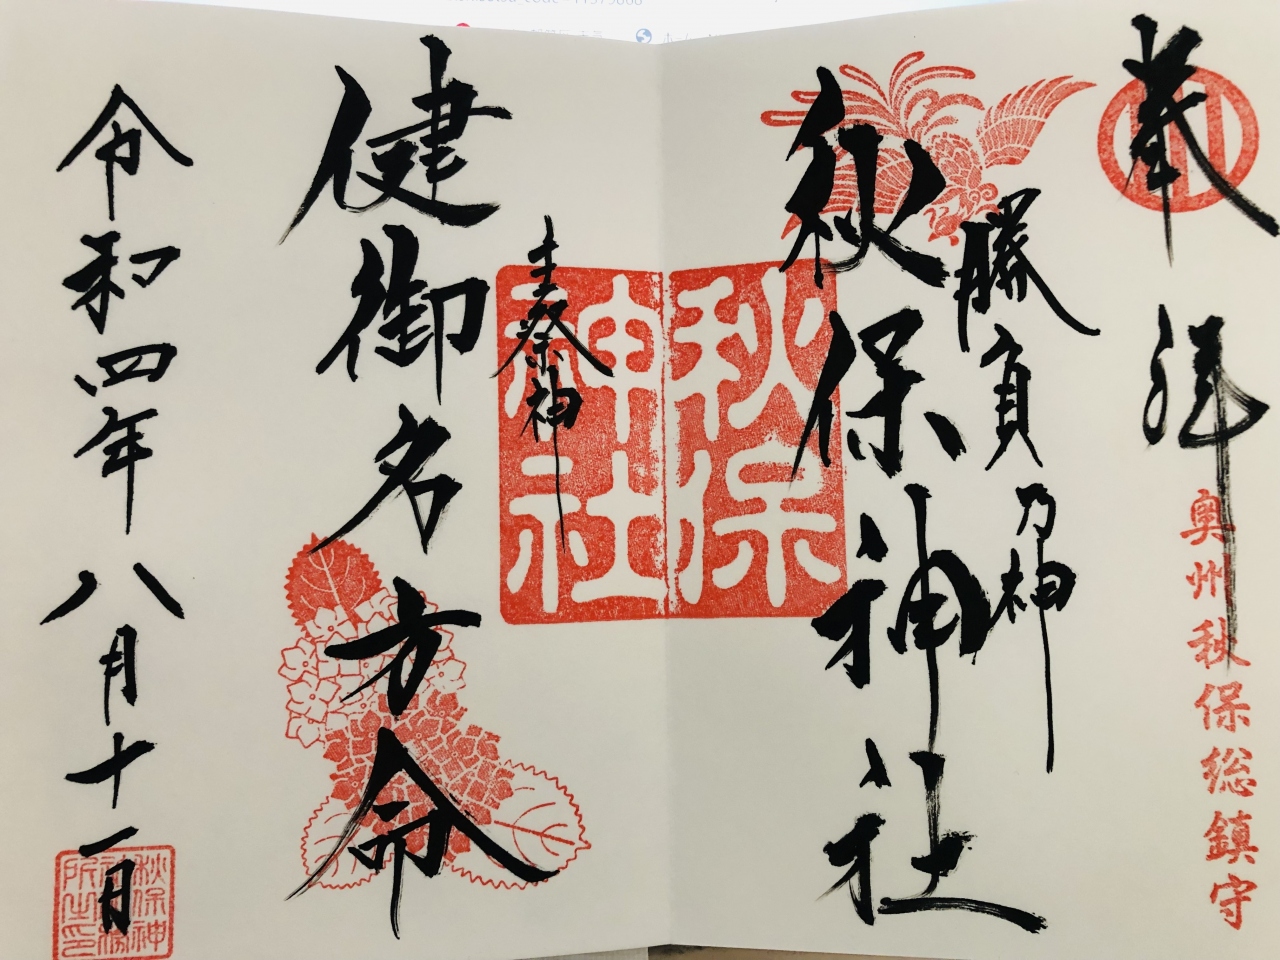 奉拝
奥州秋保総鎮守
勝負乃神
秋保神社
秋保
神社
主祭神
健御名方命
令和四年八月十一日
秋保神
社社務
所之印